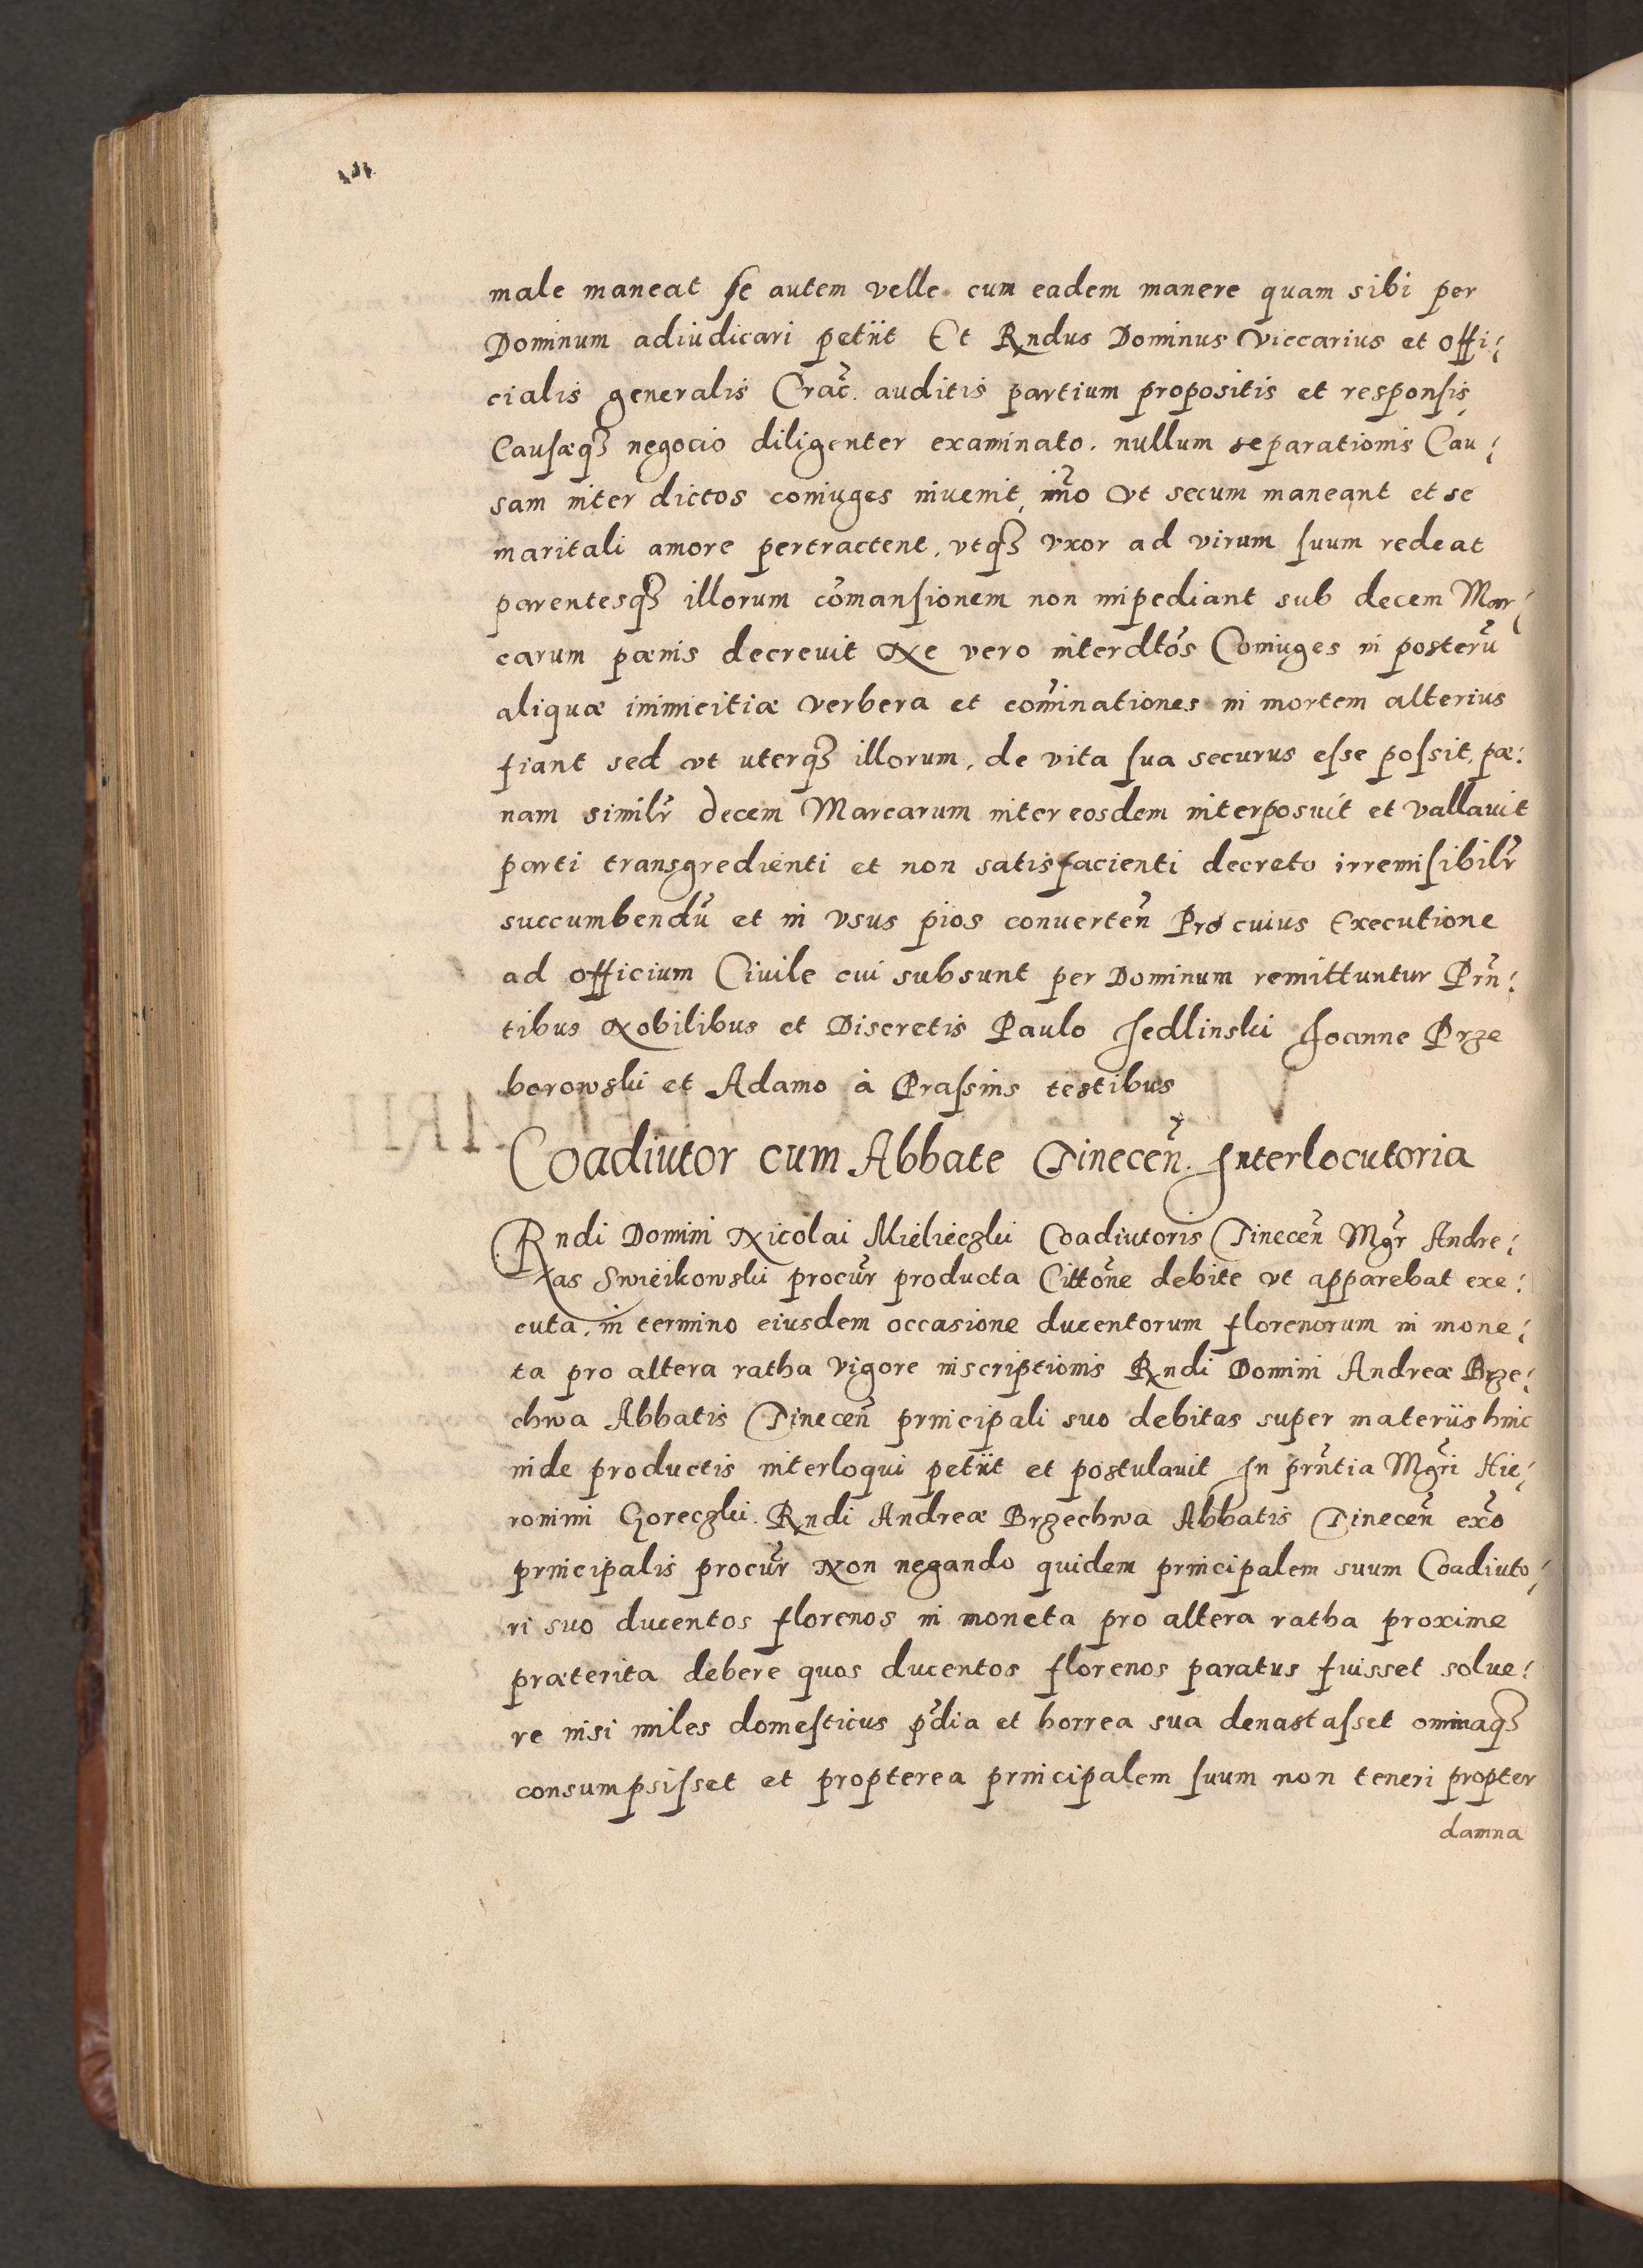 male maneat se autem velle cum eadem manere quam sibi per
Dominum adiudicari petiit Et Rndus Dominus Viccarius et offi:
cialis generalis Crac̃. auditis partium propositis et responsis
Causæq₃ negocio diligenter examinato. nullum separationis Cau:
sam inter dictos coniuges invenit, im̃o vt secum maneant et se
maritali amore pertractent, vtq₃ vxor ad virum suum redeat
parentesq₃ illorum com̃ansionem non impediant sub decem Mar:
carum pænis decrevit Ne vero inter dtõs Coniuges in posterũ
aliquæ inimicitiæ verbera et com̃inationes in mortem alterius
fiant sed vt uterq₃ illorum, de vita sua securus esse possit, pæ:
nam similr̃ decem Marcarum inter eosdem interposuit et vallavit
parti transgredienti et non satisfacienti decreto irremisibilr̃
succumbendũ et in vsus pios converteñ Pro cuius Executione
ad officium Civile cui subsunt per Dominum remittuntur Prñ:
tibus Nobilibus et Discretis Paulo Jedlinski Joanne Prze
borowski et Adamo à Prassins testibus
Coadiutor cum Abbate Tineceñ. Interlocutoria
Rndi Domini Nicolai Mielieczki Coadiutoris Tineceñ Mgr̃ Andre:
as Swieikowski procur̃ producta Cittõne debite vt apparebat exe:
cuta, in termino eiusdem occasione ducentorum florenorum in mone:
ta pro altera ratha vigore inscriptionis Rndi Domini Andreæ Brze:
chwa Abbatis Tineceñ principali suo debitas super materiis hinc
inde productis interloqui petiit et postulavit In prñtia Mgr̃i Hie:
ronimi Goreczki. Rndi Andreæ Brzechwa Abbatis Tineceñ exõ
principalis procur̃ Non negando quidem principalem suum Coadiuto:
ri suo ducentos florenos in moneta pro altera ratha proxime
præterita debere quos ducentos florenos paratus fuisset solve:
re nisi miles domesticus p̃dia et horrea sua denastasset omniaq₃
consumpsisset et propterea principalem suum non teneri propter
damna